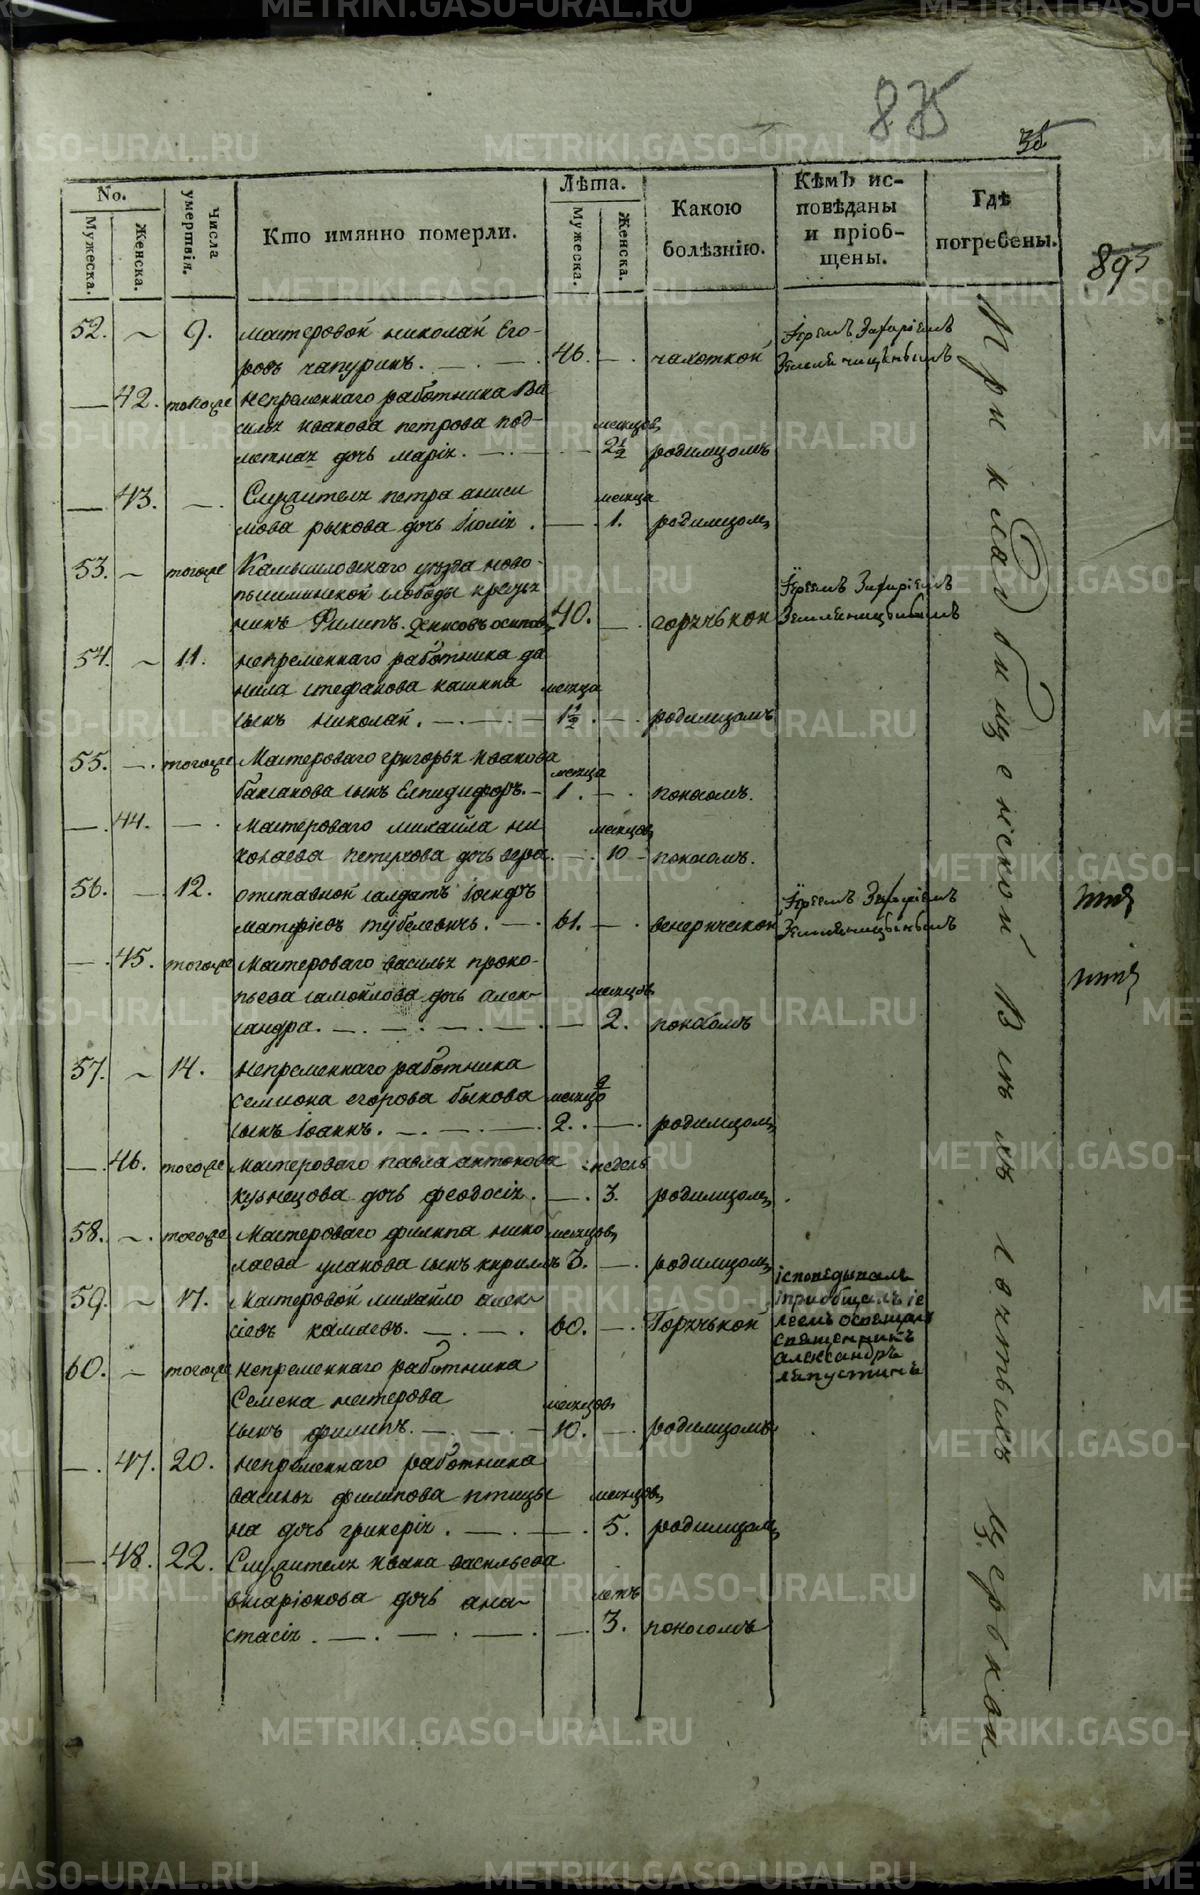 METRIKI.GASO-URAL.RU
835
No.
Мужеска.
Женска.
Числа умертвія.
Кто имянно померли.
Лѣта.
Мужеска.
Женска.
Какою болѣзнію.
Кѣмъ ис-
повѣданы
и пріоб-
щены.
Гдѣ
погребены.
893
52. 9. мастеровой николай Его-
ровъ чапуринъ. 46. чахоткой Іереемъ Захаріемъ
42. тогоже непременнаго работника Ва
силья ивакова петрова под-
дочь марія. месяцовъ 2½ родимцомъ
43. Служителя петра аниси
мова рыкова дочь Іюлія. месяца 1. родимцомъ
53. тогоже Камышловскаго уѣзда ново-
пышминской слободы
Филипъ. денисовъ осиповъ 40. горячькой Іереемъ Захаріемъ
54. 11. непременнаго работника да
нила стефанова кашина
сынъ николай. месяца 1½. родимцомъ
55. тогоже Мастероваго григорья иванова
сынъ Елпидифоръ. месяца 1. поносомъ.
44. Мастероваго михаила ни
колаева петухова дочь вера. месяцовъ 10 поносомъ.
56. 12. отставной салдатъ Іосифъ
матфіевъ 61. венерической Іереемъ Захаріемъ
45. тогоже Мастероваго василья проко-
пьева самойлова дочь алек-
сандра. месяцовъ 2. поносомъ
57. 14. непременнаго работника
семиона егорова быкова
сынъ Іоаннъ. месяцо 2. родимцомъ
46. тогоже мастероваго павла антонова
кузнецова дочь феодосія. недель 3. родимцомъ.
58. тогоже Мастероваго филипа нико
лаева улакова сынъ кирилъ месяцовъ 3. родимцомъ
59. 17. Мастеровой михайло алек-
сіевъ камаевъ. 60. Горячькой
іспопедывалъ
іприобщалъ іе
леемъ освящалъ
священникъ
александръ
лапустинъ
60. тогоже непременнаго работника
Семена нестерова
сынъ филипъ. месяцовъ 10. родимцомъ
47. 20. непременнаго работника
василья филипова птицы
на дочь гликерія. месяцовъ 5. родимцомъ
48. 22. Служителя ивана васильева
дочь ана-
стасія. летъ 3. поносомъ
При кладбищенской Всехъ святыхъ церкви